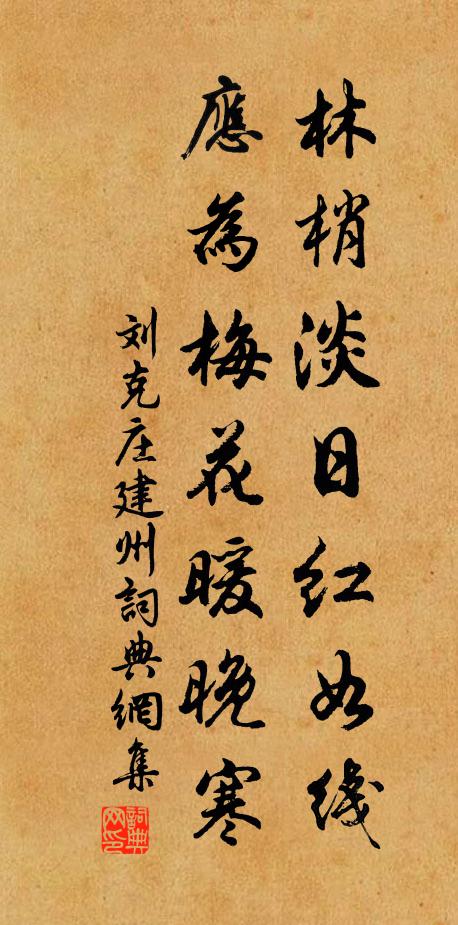 林梢淡日红如线
應為梅花暖晚寒
刘克庄建州詞典網集
詞典网印